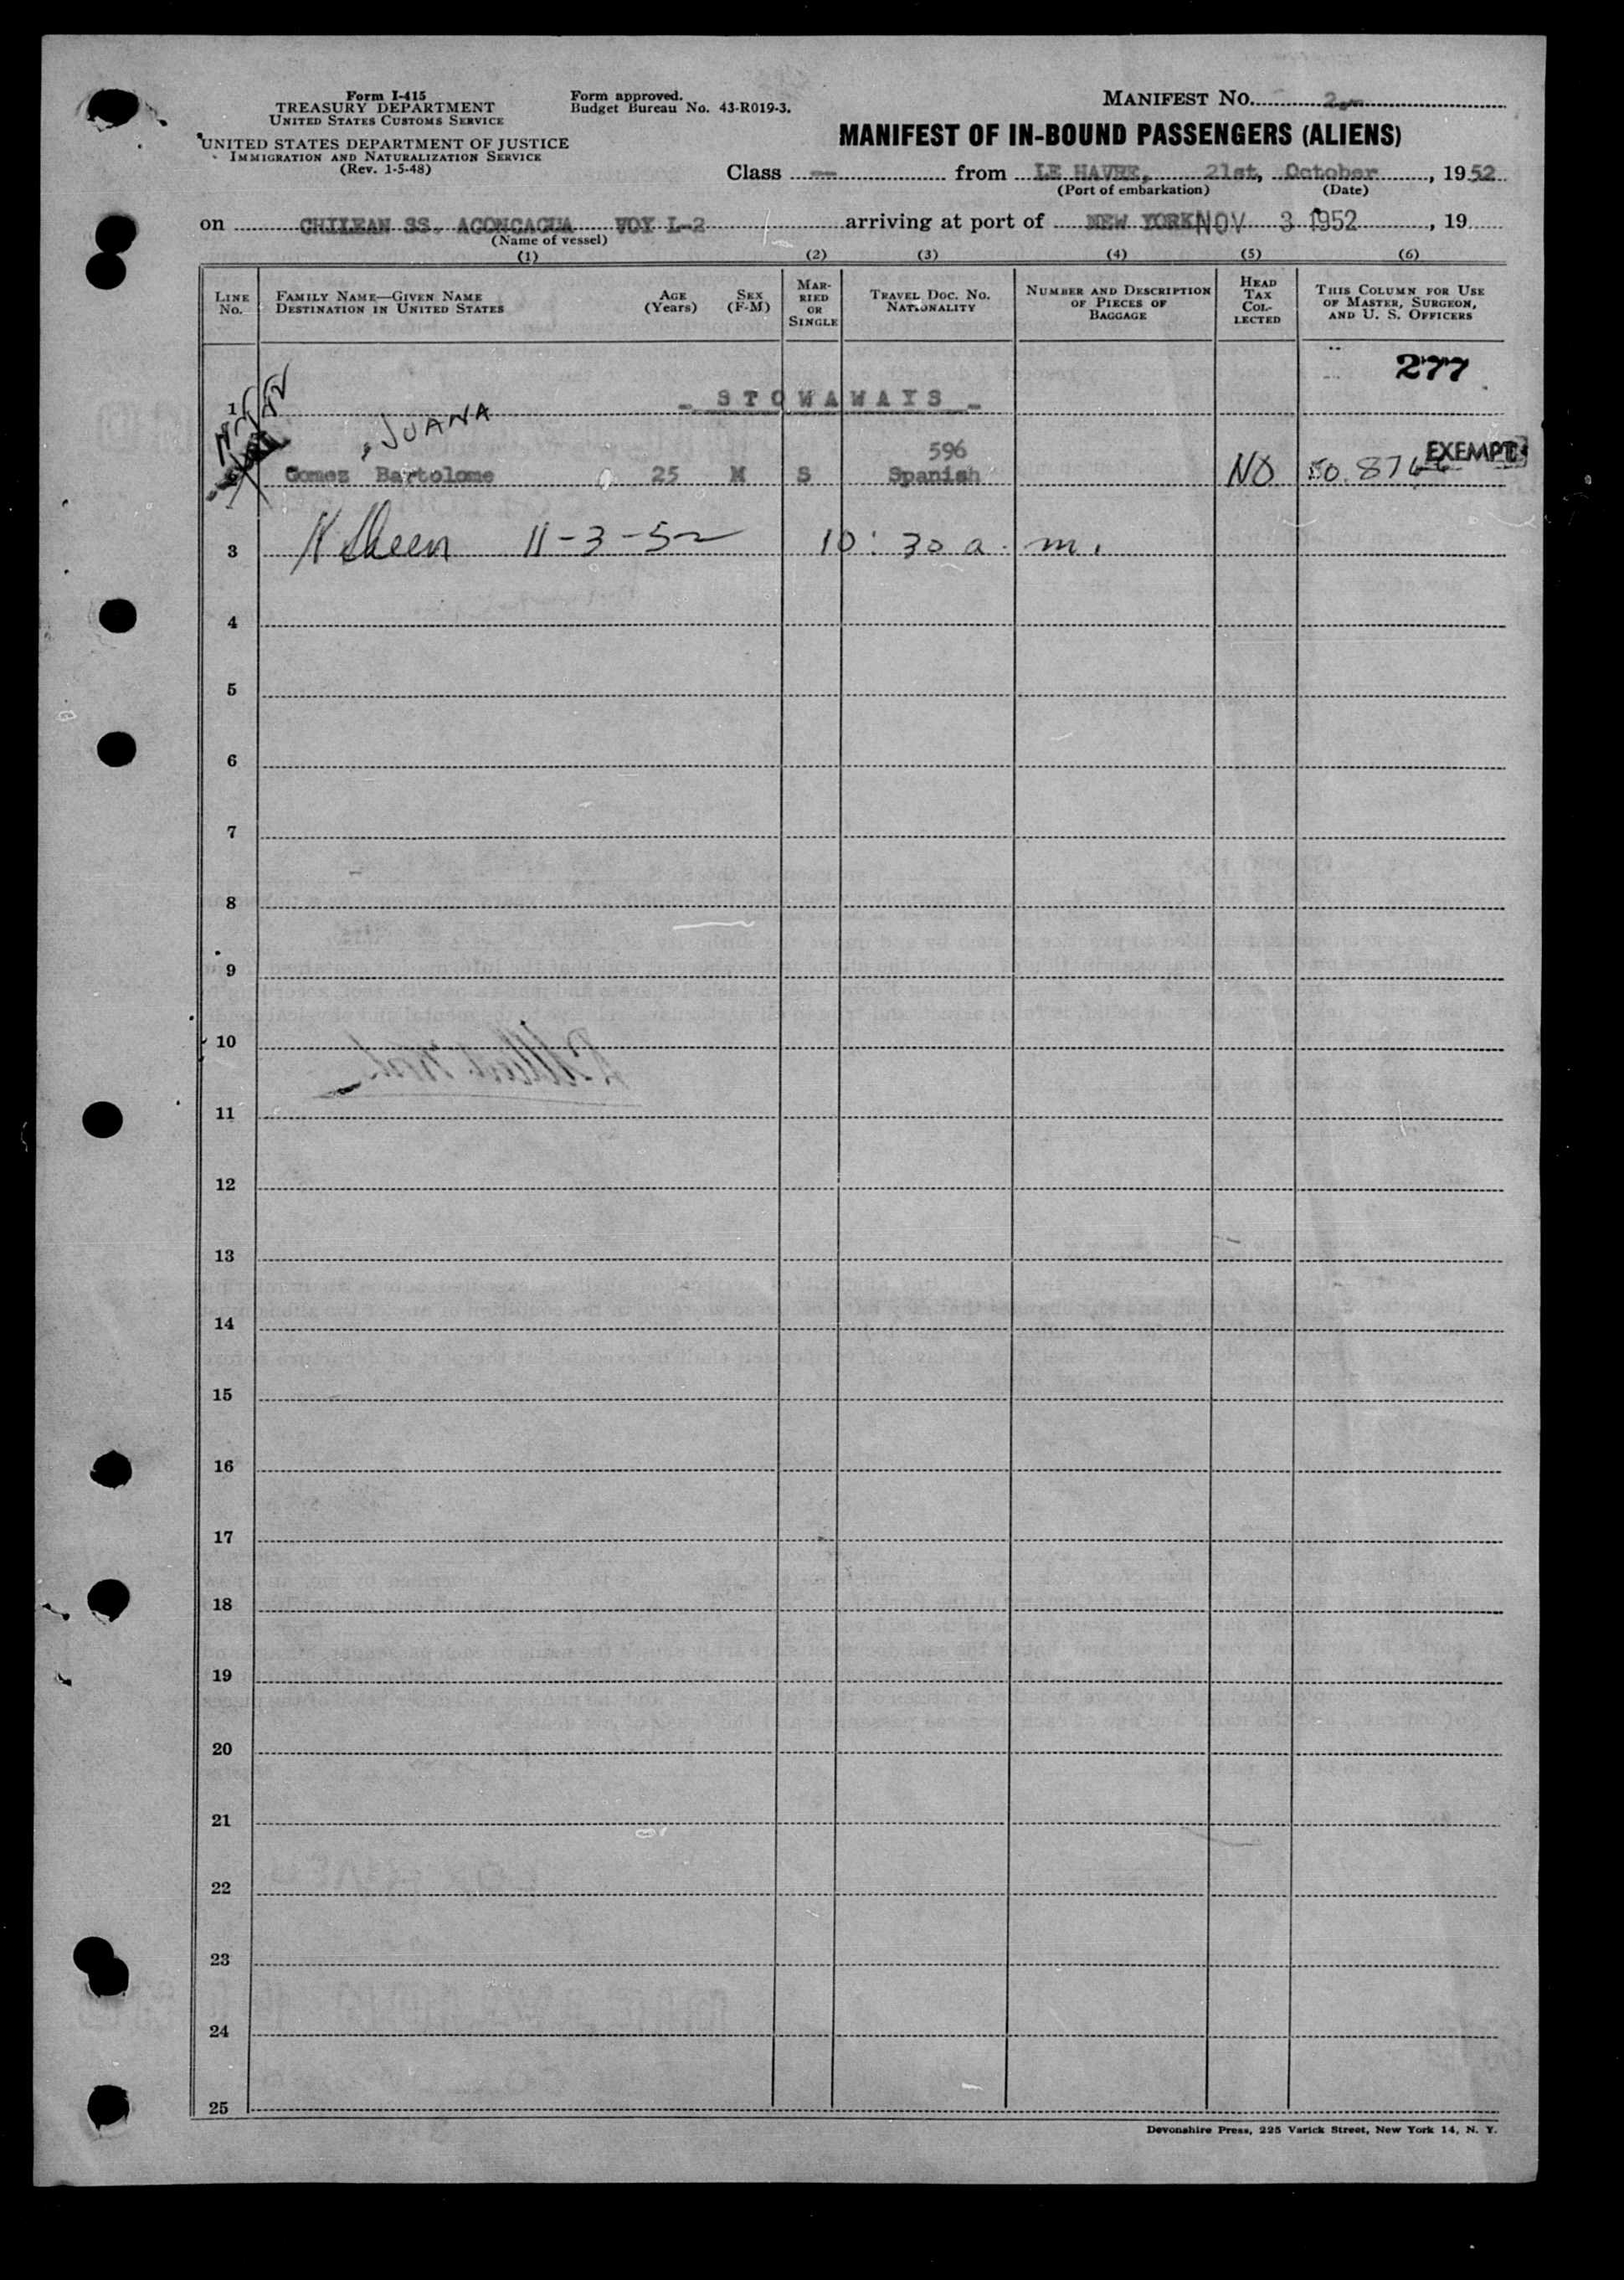 Form I-415
TREASURY DEPARTMENT
UNITED STATES CUSTOMS SERVICE
UNITED STATES DEPARTMENT OF JUSTICE
IMMIGRATION AND NATURALIZATION SERVICE
(Rev. 1-5-48)
Form approved.
Budget Bureau No. 43-R019-3.
MANIFEST NO. 2
MANIFEST OF IN-BOUND PASSENGERS (ALIENS)
Class -- from LE HAVRE, 21st, October, 1952
(Port of embarkation) (Date)
on CHILEAN SS. ACONCAGUA VOY L-2 arriving at port of NEW YORK NOV 3 1952, 19
(Name of vessel)
(1) (2) (3) (4) (5) (6)
LINE No.
FAMILY NAME—GIVEN NAME DESTINATION IN UNITED STATES
AGE (Years)
SEX (F-M)
MARRIED OR SINGLE
TRAVEL DOC. NO. NATIONALITY
NUMBER AND DESCRIPTION OF PIECES OF BAGGAGE
HEAD TAX COLLECTED
THIS COLUMN FOR USE OF MASTER, SURGEON, AND U. S. OFFICERS
277
1 - STOWAWAYS -
, JUANA
596 EXEMPT
Gomez Bartolome 25 M S Spanish NO
3 11-3-52 10:30 a.m.
4
5
6
7
8
9
10
11
12
13
14
15
16
17
18
19
20
21
22
23
24
25
Devonshire Press, 225 Varick Street, New York 14, N. Y.